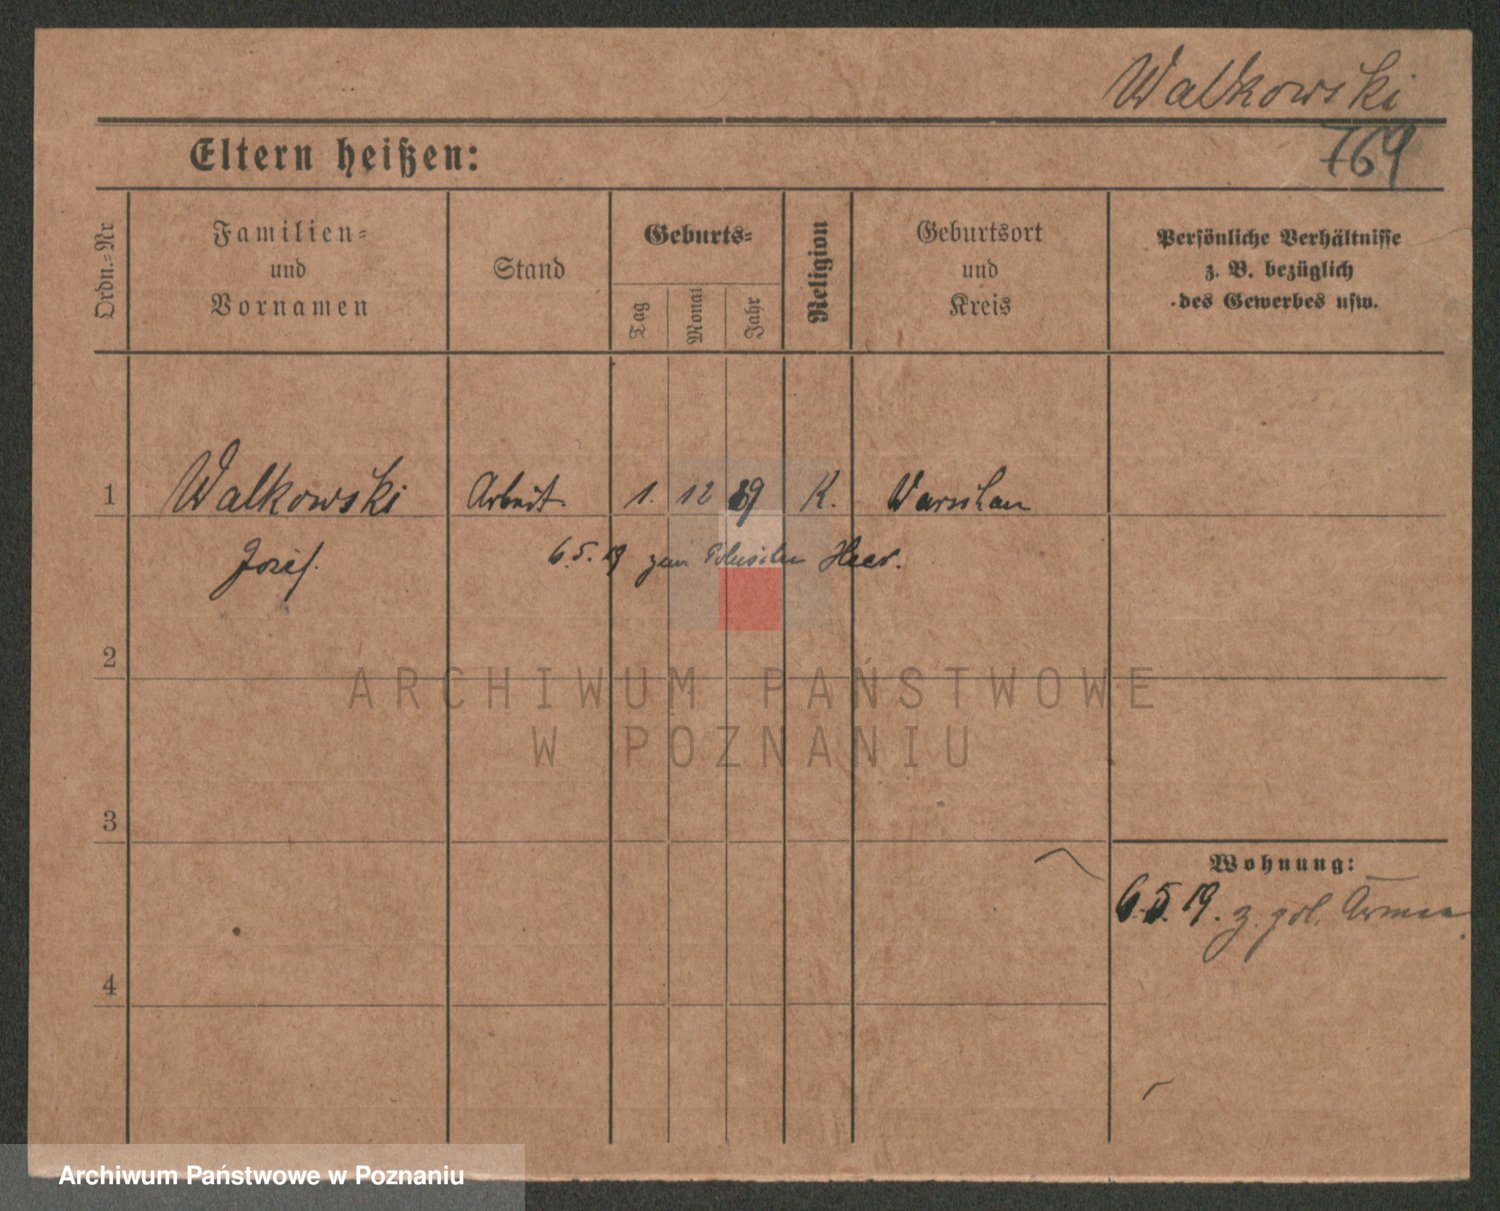 Walkowski
769
Eltern heißen:
Ordn.-Nr
Familien-
und
Vornamen
Stand
Geburts-
Tag
Monat
Jahr
Religion
Geburtsort
und
Kreis
Persönliche Verhältnisse
z. B. bezüglich
des Gewerbes usw.
1 Walkowski Arbeit. 1. 12 89 K. Warschau
Jozef. 6.5.19 zum Polnischen Heer.
2
ARCHIWUM PAŃSTWOWE
W POZNANIU
3
Wohnung:
6.5.19. z. pol. Armee
4
Archiwum Państwowe w Poznaniu